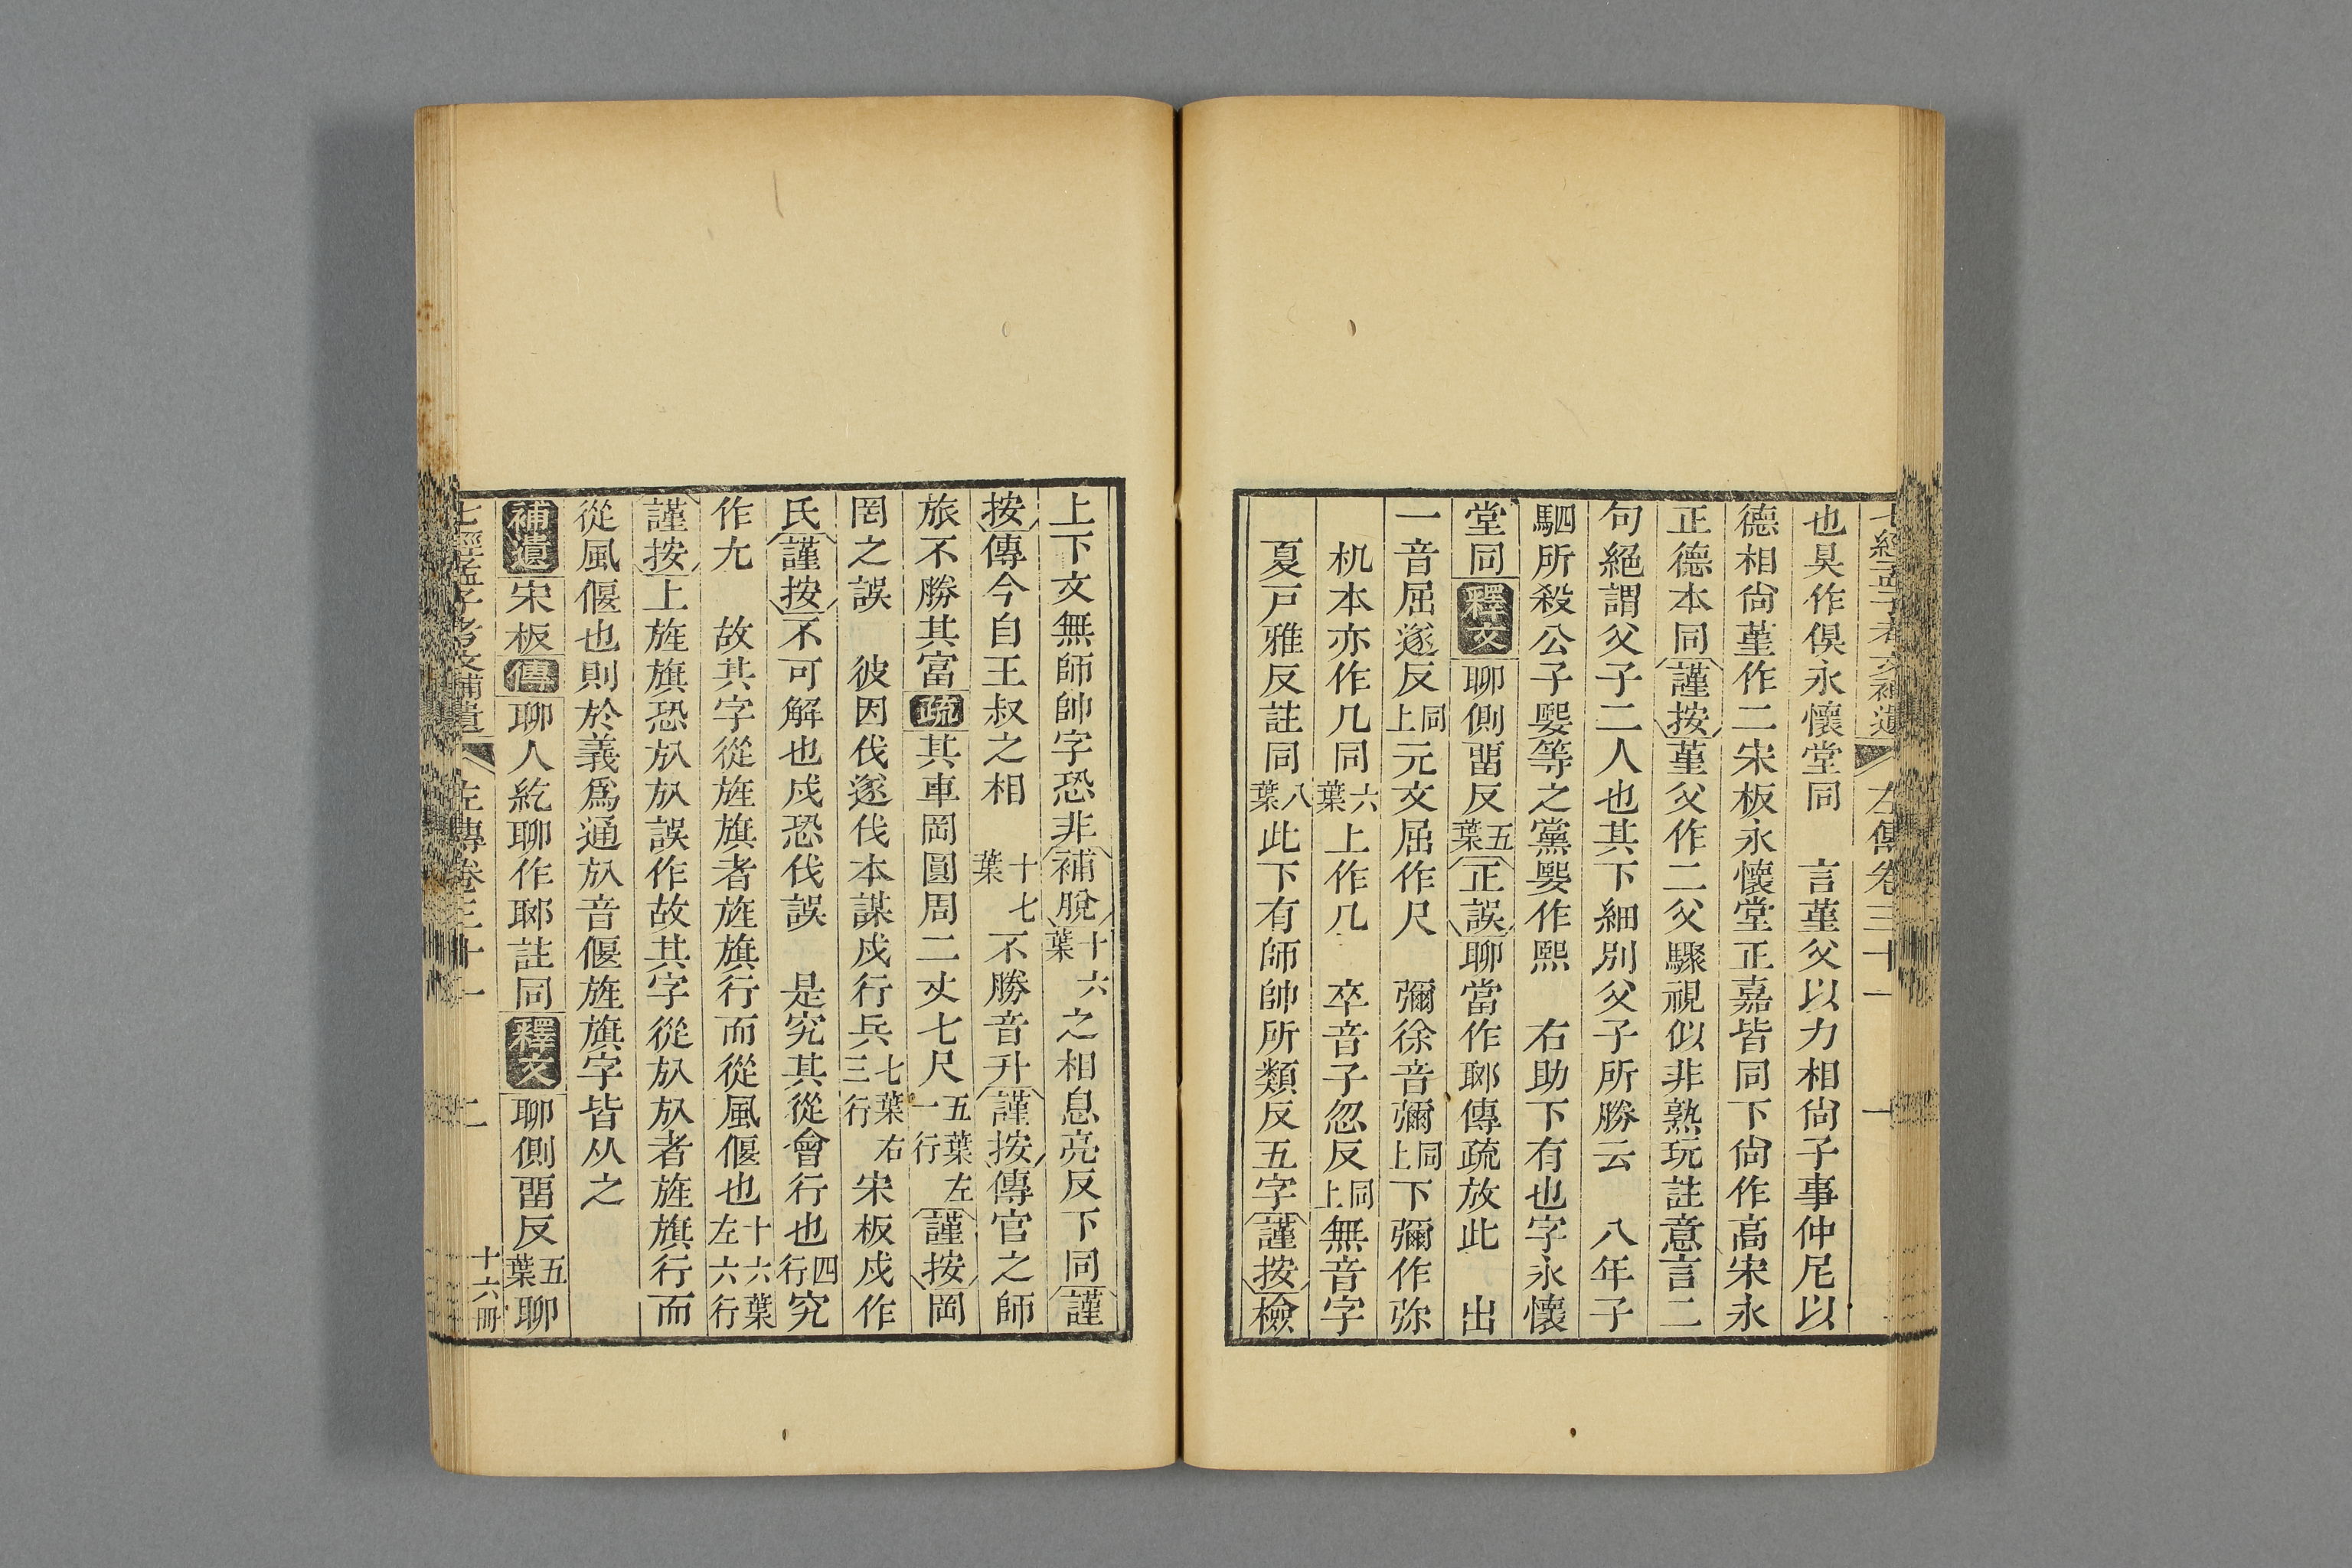 七經孟子考文補遺 左傳卷三十一 一
也具作俱永懷堂同 言堇父以力相尙子事仲尼以
德相尙堇作二宋板永懷堂正嘉皆同下尙作高宋永
正德本同謹按堇父作二父驟視似非熟玩註意言二
句絕謂父子二人也其下細別父子所勝云 八年子
駟所殺公子嬰等之黨嬰作熙 右助下有也字永懷
堂同釋文聊側畱反五葉正誤聊當作郰傳疏放此 出
一音屈遂反同上元文屈作尺 彌徐音彌同上下彌作弥
机本亦作几同六葉上作几 卒音子忽反同上無音字
夏戸雅反註同八葉此下有師帥所類反五字謹按檢
上下文無師帥字恐非補脫十六葉之相息亮反下同謹
按傳今自王叔之相 十七葉不勝音升謹按傳官之師
旅不勝其富疏其車罔圓周二丈七尺五葉左一行謹按罔
罔之誤 彼因伐遂伐本謀戍行兵七葉右三行宋板戍作
氏謹按不可解也戍恐伐誤 是究其從會行也四行究
作尢 故其字從旌旗者旌旗行而從風偃也十六葉左六行
謹按上旌旗恐㫃㫃誤作故其字從㫃㫃者旌旗行而
從風偃也則於義爲通㫃音偃旌旗字皆从之
補遺宋板傳聊人紇聊作郰註同釋文聊側畱反五葉聊
七經孟子考文補遺 左傳卷三十一 二 十六冊